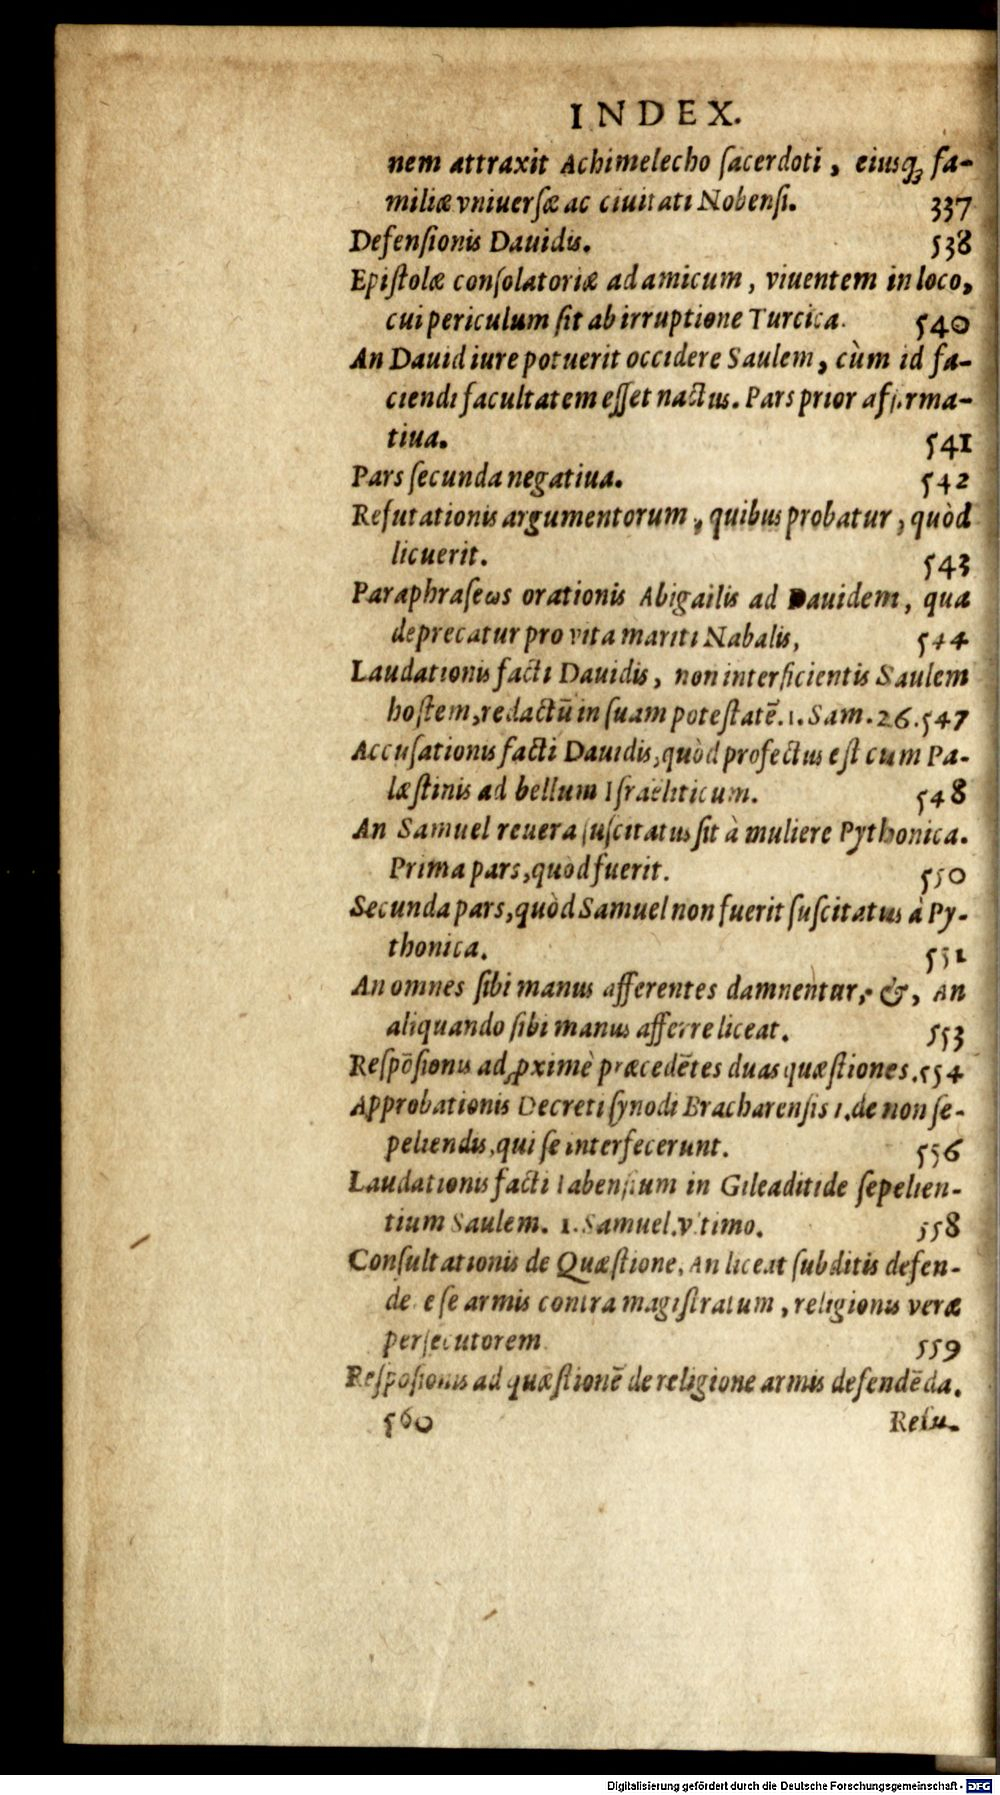 INDEX.
nem attraxit Achimelecho ſacerdoti, eiusq́ꝫ fa-
miliæ vniuerſæ ac ciuitati Nobenſi. 337
Defenſionis Dauidis. 538
Epiſtolæ conſolatoriæ ad amicum, viuentem in loco,
cui periculum ſit ab irruptione Turcica. 540
An Dauid iure potuerit occidere Saulem, cùm id fa-
ciendi facultatem eſſet nactus. Pars prior affirma-
tiua. 541
Pars ſecunda negatiua. 542
Refutationis argumentorum, quibus probatur, quòd
licuerit. 543
Paraphraſeωs orationis Abigailis ad Dauidem, qua
deprecatur pro vita mariti Nabalis, 544
Laudationis facti Dauidis, non interficientis Saulem
hoſtem, redactū in ſuam poteſtatē. 1. Sam. 26. 547
Accuſationis facti Dauidis, quòd profectus eſt cum Pa-
læſtinis ad bellum Iſraëliticum. 548
An Samuel reuera ſuſcitatus ſit à muliere Pythonica.
Prima pars, quòd fuerit. 550
Secunda pars, quòd Samuel non fuerit ſuſcitatus à Py-
thonica. 551
An omnes ſibi manus afferentes damnentur, &, An
aliquando ſibi manus afferre liceat. 553
Reſpōſionis ad ꝓximè præcedētes duas quæſtiones. 554
Approbationis Decreti ſynodi Bracharenſis 1. de non ſe-
peliendis, qui ſe interfecerunt. 556
Laudationis facti Iabenſium in Gileaditide ſepelien-
tium Saulem. 1. Samuel. vltimo. 558
Conſultationis de Quæſtione, An liceat ſubditis defen-
dere ſe armis contra magiſtratum, religionis veræ
perſecutorem 559
Reſpoſionis ad quæſtionē de religione armis defendēda.
560 Refu-
Digitalisierung gefördert durch die Deutsche Forschungsgemeinschaft - DFG